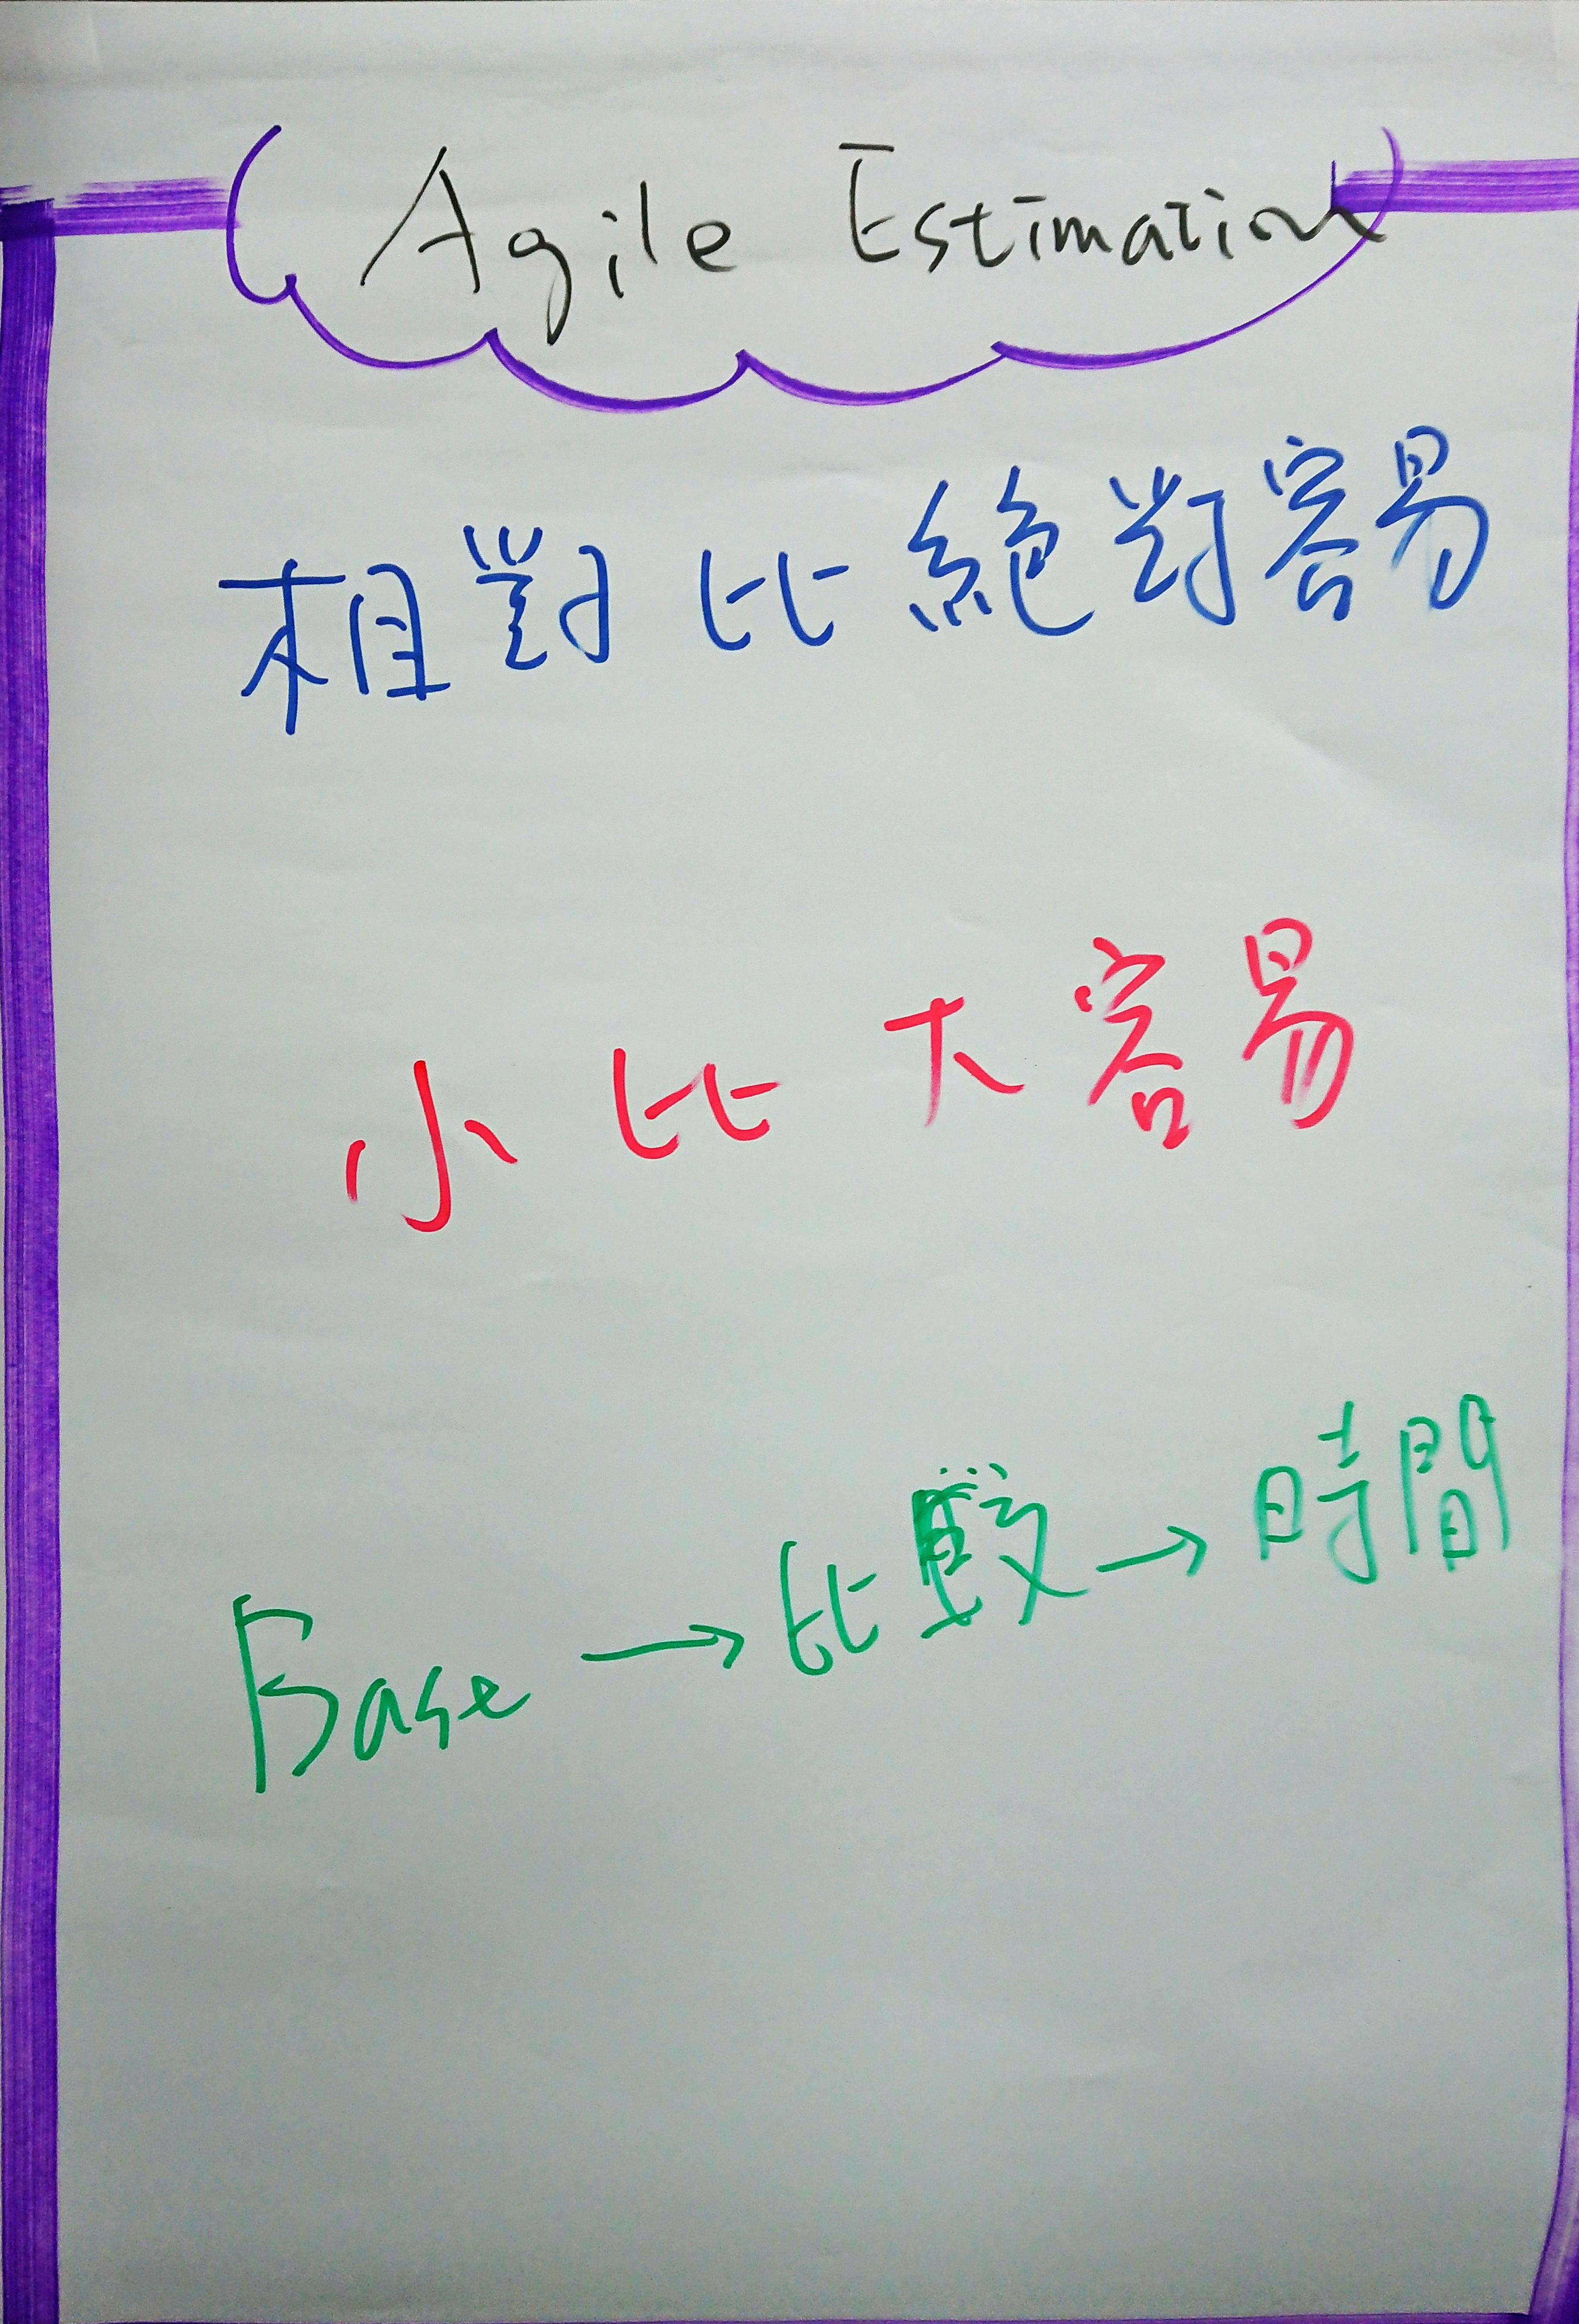 Agile Estimation
相對比絕對容易
小比大容易
Base → 比較 → 時間